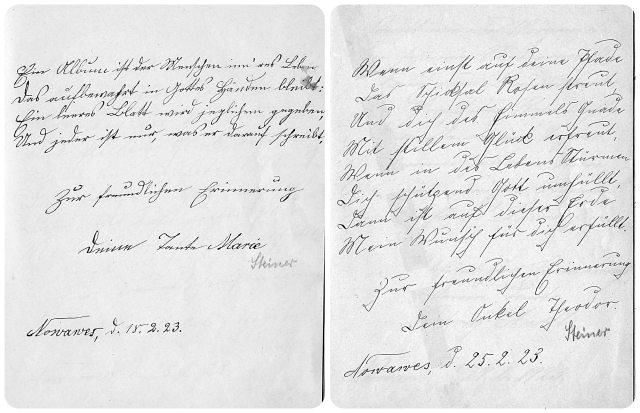 Ein Album ist der Menschen inn'res Leben
Das aufbewahrt in Gottes Händen bleibt:
Ein leeres Blatt wird jeglichem gegeben,
Und jeder ist nur, was er darauf schreibt.
Zur freundlichen Erinnerung
Deine Tante Marie
Steiner
Nowawes, d. 18.2.23.
Wenn einst auf deine Pfade
Das Schicksal Rosen streut,
Und dich des Himmels Gnade
Mit stillem Glück erfreut,
Wenn in des Lebens Stürmen
Dich schützend Gott umhüllt,
Dann ist auf dieser Erde
Mein Wunsch für dich erfüllt.
Zur freundlichen Erinnerung
Dein Onkel Theodor.
Steiner
Nowawes, d. 25.2.23.